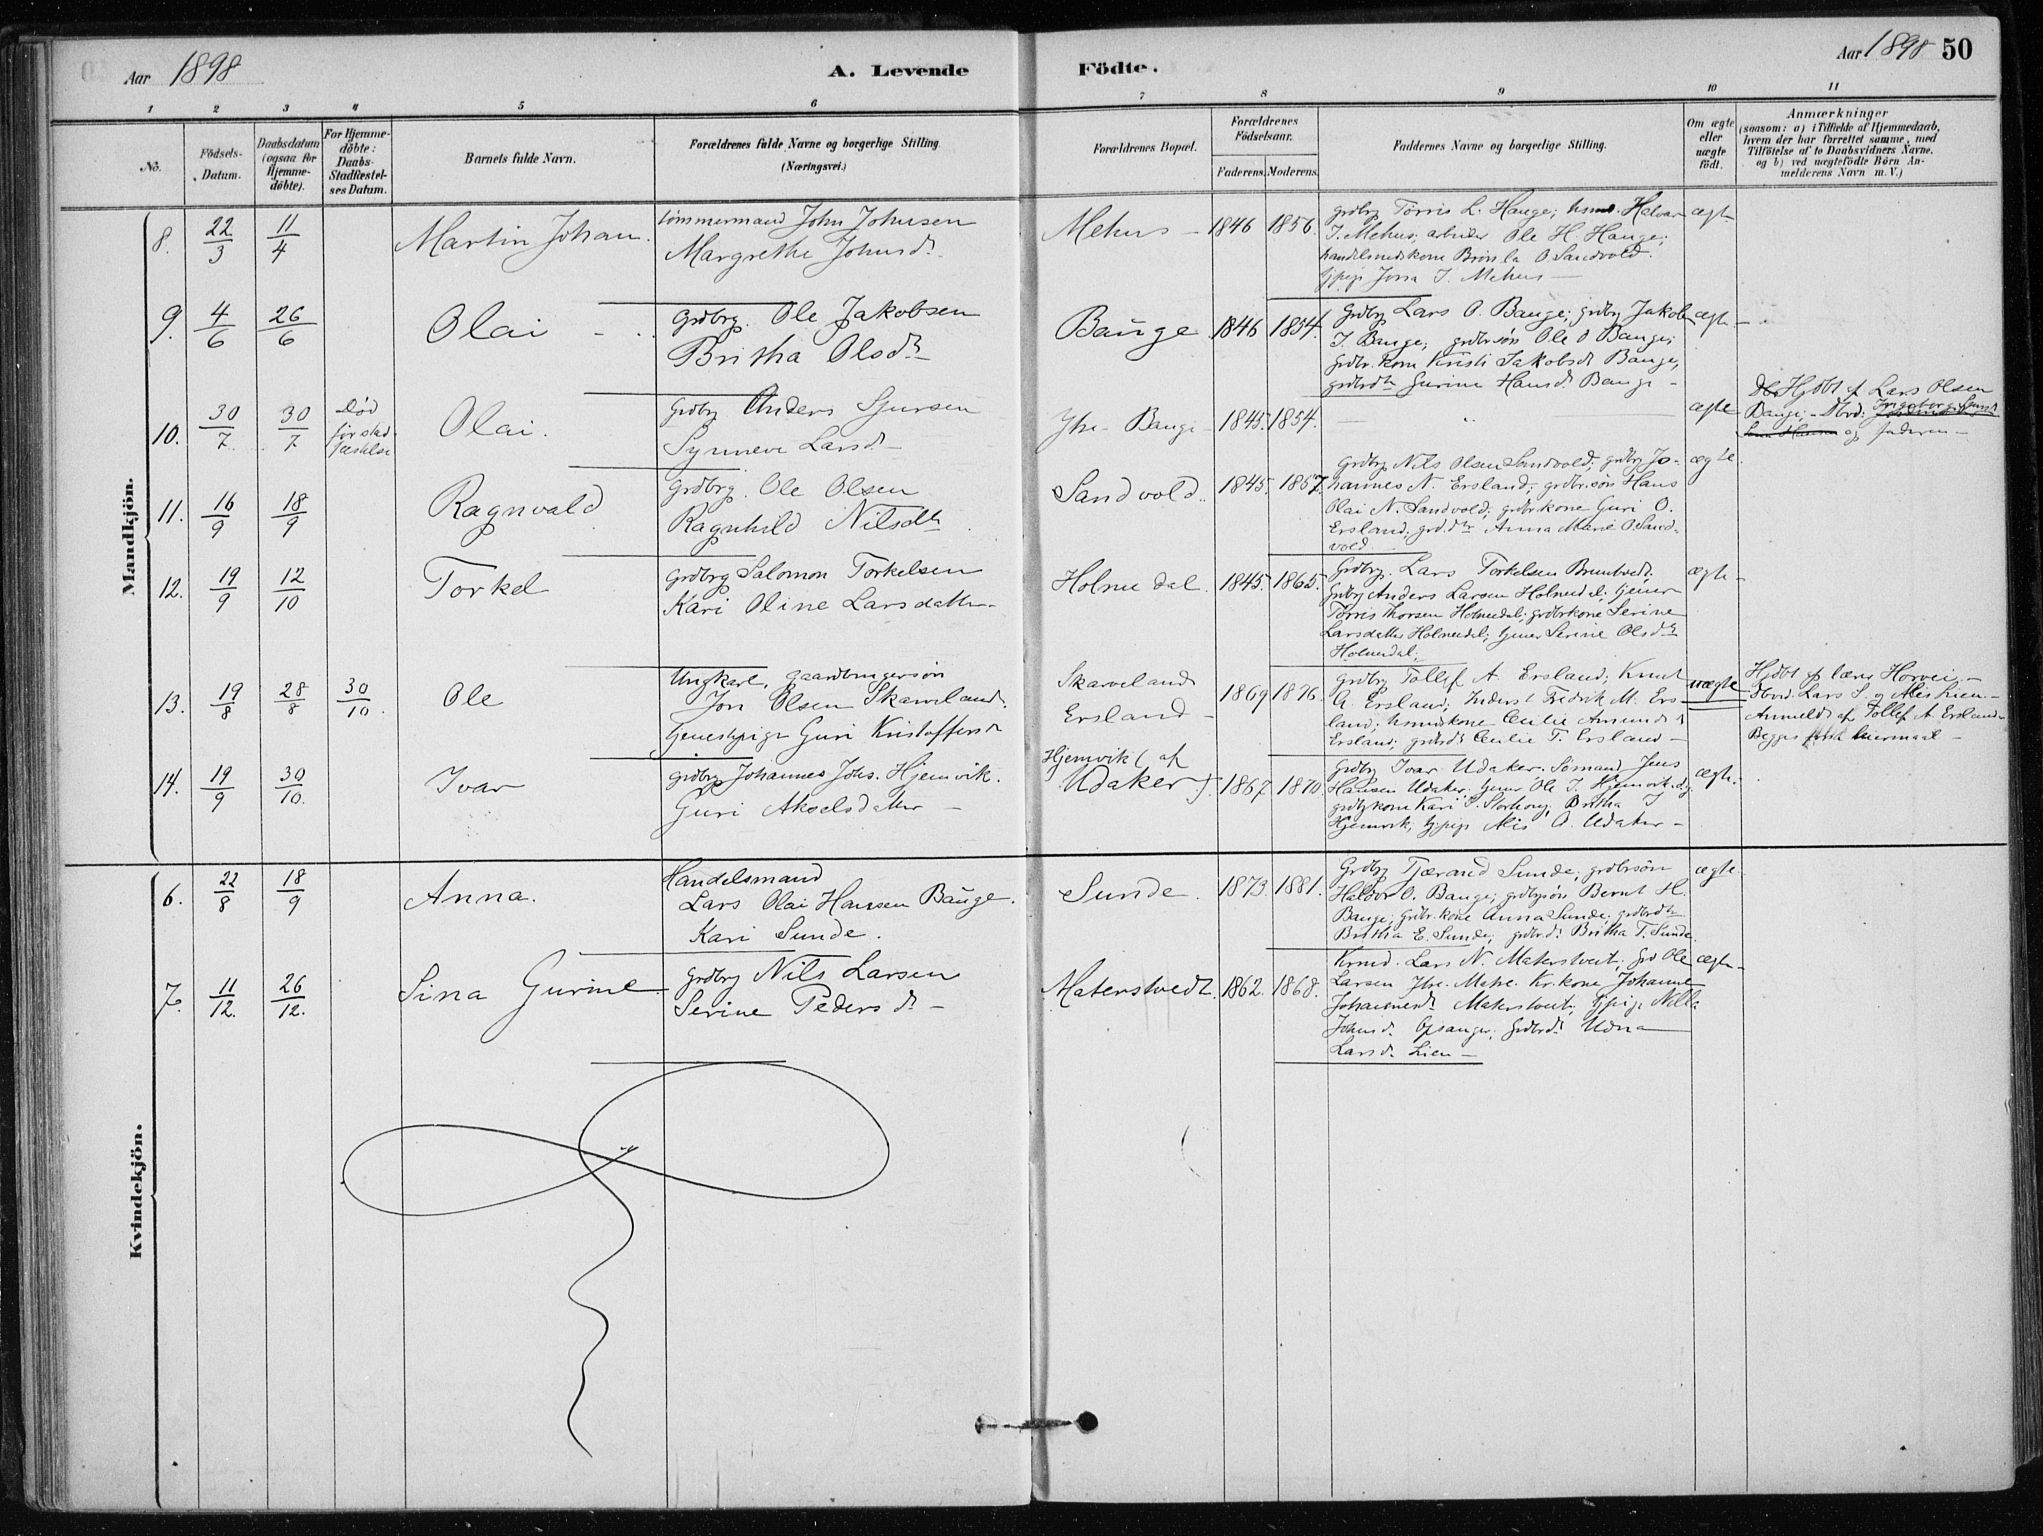 Aar 1898
A. Levende
Födte.
Aar 1898 50
1 2 3 4 5 6 7 8 9 10 11
No.
Födsels-
Datum.
Daabsdatum
(ogsaa for
Hjemme-
döbte).
For Hjemme-
döbte:
Daabs-
Stadfæstel-
ses Datum.
Barnets fulde Navn.
Forældrenes fulde Navne og borgerlige Stilling
(Næringsvei.)
Forældrenes Bopæl.
Forældrenes
Födselsaar.
Faderens. Moderens.
Faddernes Navne og borgerlige Stilling.
Om ægte
eller
uægte
födt.
Anmærkninger
(saasom: a) i Tilfælde af Hjemmedaab,
hvem der har forrettet samme, med
Tilföielse af to Daabsvidners Navne,
og b) ved uægtefödte Börn An-
melderens Navn m. V.)
Mandkjön.
8. 22/3 11/4 Martin Johan.
tømmermand John Johnsen
Margrethe Johnsd.
Mehus 1846 1856.
grdbrg Tørris L. Hauge; husm. Halvar
J. Mehus; arbeider Ole H. Hauge;
handelsmdskone Brønla O Sandvold.
tjpige Jona J. Mehus
ægt.
9. 4/6 26/6 Olai
grdbrg. Ole Jakobsen
Britha Olsdtr
Bauge 1846 1854.
Grdbrg Lars O. Bauge; grdbrg Jakob
J. Bauge; grdbrsøn Ole O Bauge;
grdbr.kone Kristi Jakobsd Bauge,
grdbrdtr Gurine Hansd Bauge
ægte
10. 30/7 30/7 Død
før stad-
fæstelse
Olai.
Grdbrg Anders Sjursen
Synneve Larsd
Ytre Bauge 1845. 1854.
ægte
Hjdbt af Lars Olsen
Bauge; Dbvd: Ingeborg Sjursd
og faderen
11. 16/9 18/9 Ragnvald
Grdbrg. Ole Olsen
Ragnhild Nilsdtr
Sandvold. 1845. 1857.
Grdbrg Nils Olsen Sandvold; grdbrg Jo-
hannes N. Ersland; grdbrsøn Hans
Olai N. Sandvold; grdbrkone Guri O.
Ersland; grd.dtr Anna Marie O. Sand-
vold
ægte.
12. 19/9 12/10 Torkel
grdbrg Salomon Torkelsen
Kari Oline Larsdatter
Holmedal. 1845. 1865.
Grdbrg. Lars Torkelsen Brunbvedt.
Grdbrg Anders Larsen Holmedal; tjener
Tørris Thorsen Holmedal; grdbrkone Serine
Larsdatter Holmedal; tjener Serine Olsdtr
Holmedal.
ægte
13. 19/8 28/8 30/10 Ole
Ungkarl, gaardbrugersøn
Jon Olsen Skarveland.
tjenestepige Guri Kristoffersd
Skarveland
Ersland 1869 1876.
grdbrg Tollef A. Ersland; Knut
A. Ersland; Inderst Fredrik M. Ers-
land; husmdskone Cecilie Amundsd
Ersland; grdbrd Cecilie T. Ersland
uægte
Hjdbt af lærer Horvei;
Dbvd. Lars S. og Alis Lien.
Anmeldt af Tollef A. Ersland.
Begges første leiermaal
14. 19/9 30/10. Ivar
grdbrg Johannes Johs. Hjemvik.
Guri Akselsdatter
Hjemvik (af
Udaker). 1867. 1870.
Grdbrg Ivar Udaker. Sømand Jens
Hansen Udaker; tjener Ole J. Hjemvik.
grdbrgkone Kari S. Storhoug; Britha J
Hjemvik, tjpige Alis A. Udaker
ægte.
Kvindekjön.
6. 22/8 18/9 Anna.
Handelsmand
Lars Olai Hansen Bauge.
Kari Sunde.
Sunde. 1873 1881.
Grdbrg Tjærand Sunde; grdbrsøn
Haldor O. Bauge; grdbrgsøn Bernt H.
Bauge; grdbr.kone Anna Sunde; grdbrdtr
Britha E. Sunde; grdbr.d. Britha T. Sunde.
ægte
7. 11/12. 26/12. Sina Gurine
grdbrg Nils Larsen
Serine Pedersd.
Materstvedt. 1862. 1868.
Krmd. Lars N. Matrestveit; grd Ole
Larsen Ytre Matre. Kr.kone Johanne
Johannesd Matrestveit; tjpige Nilla
Johnsd. Opsanger; grdbrd. Udna
Larsd. Lien
ægte